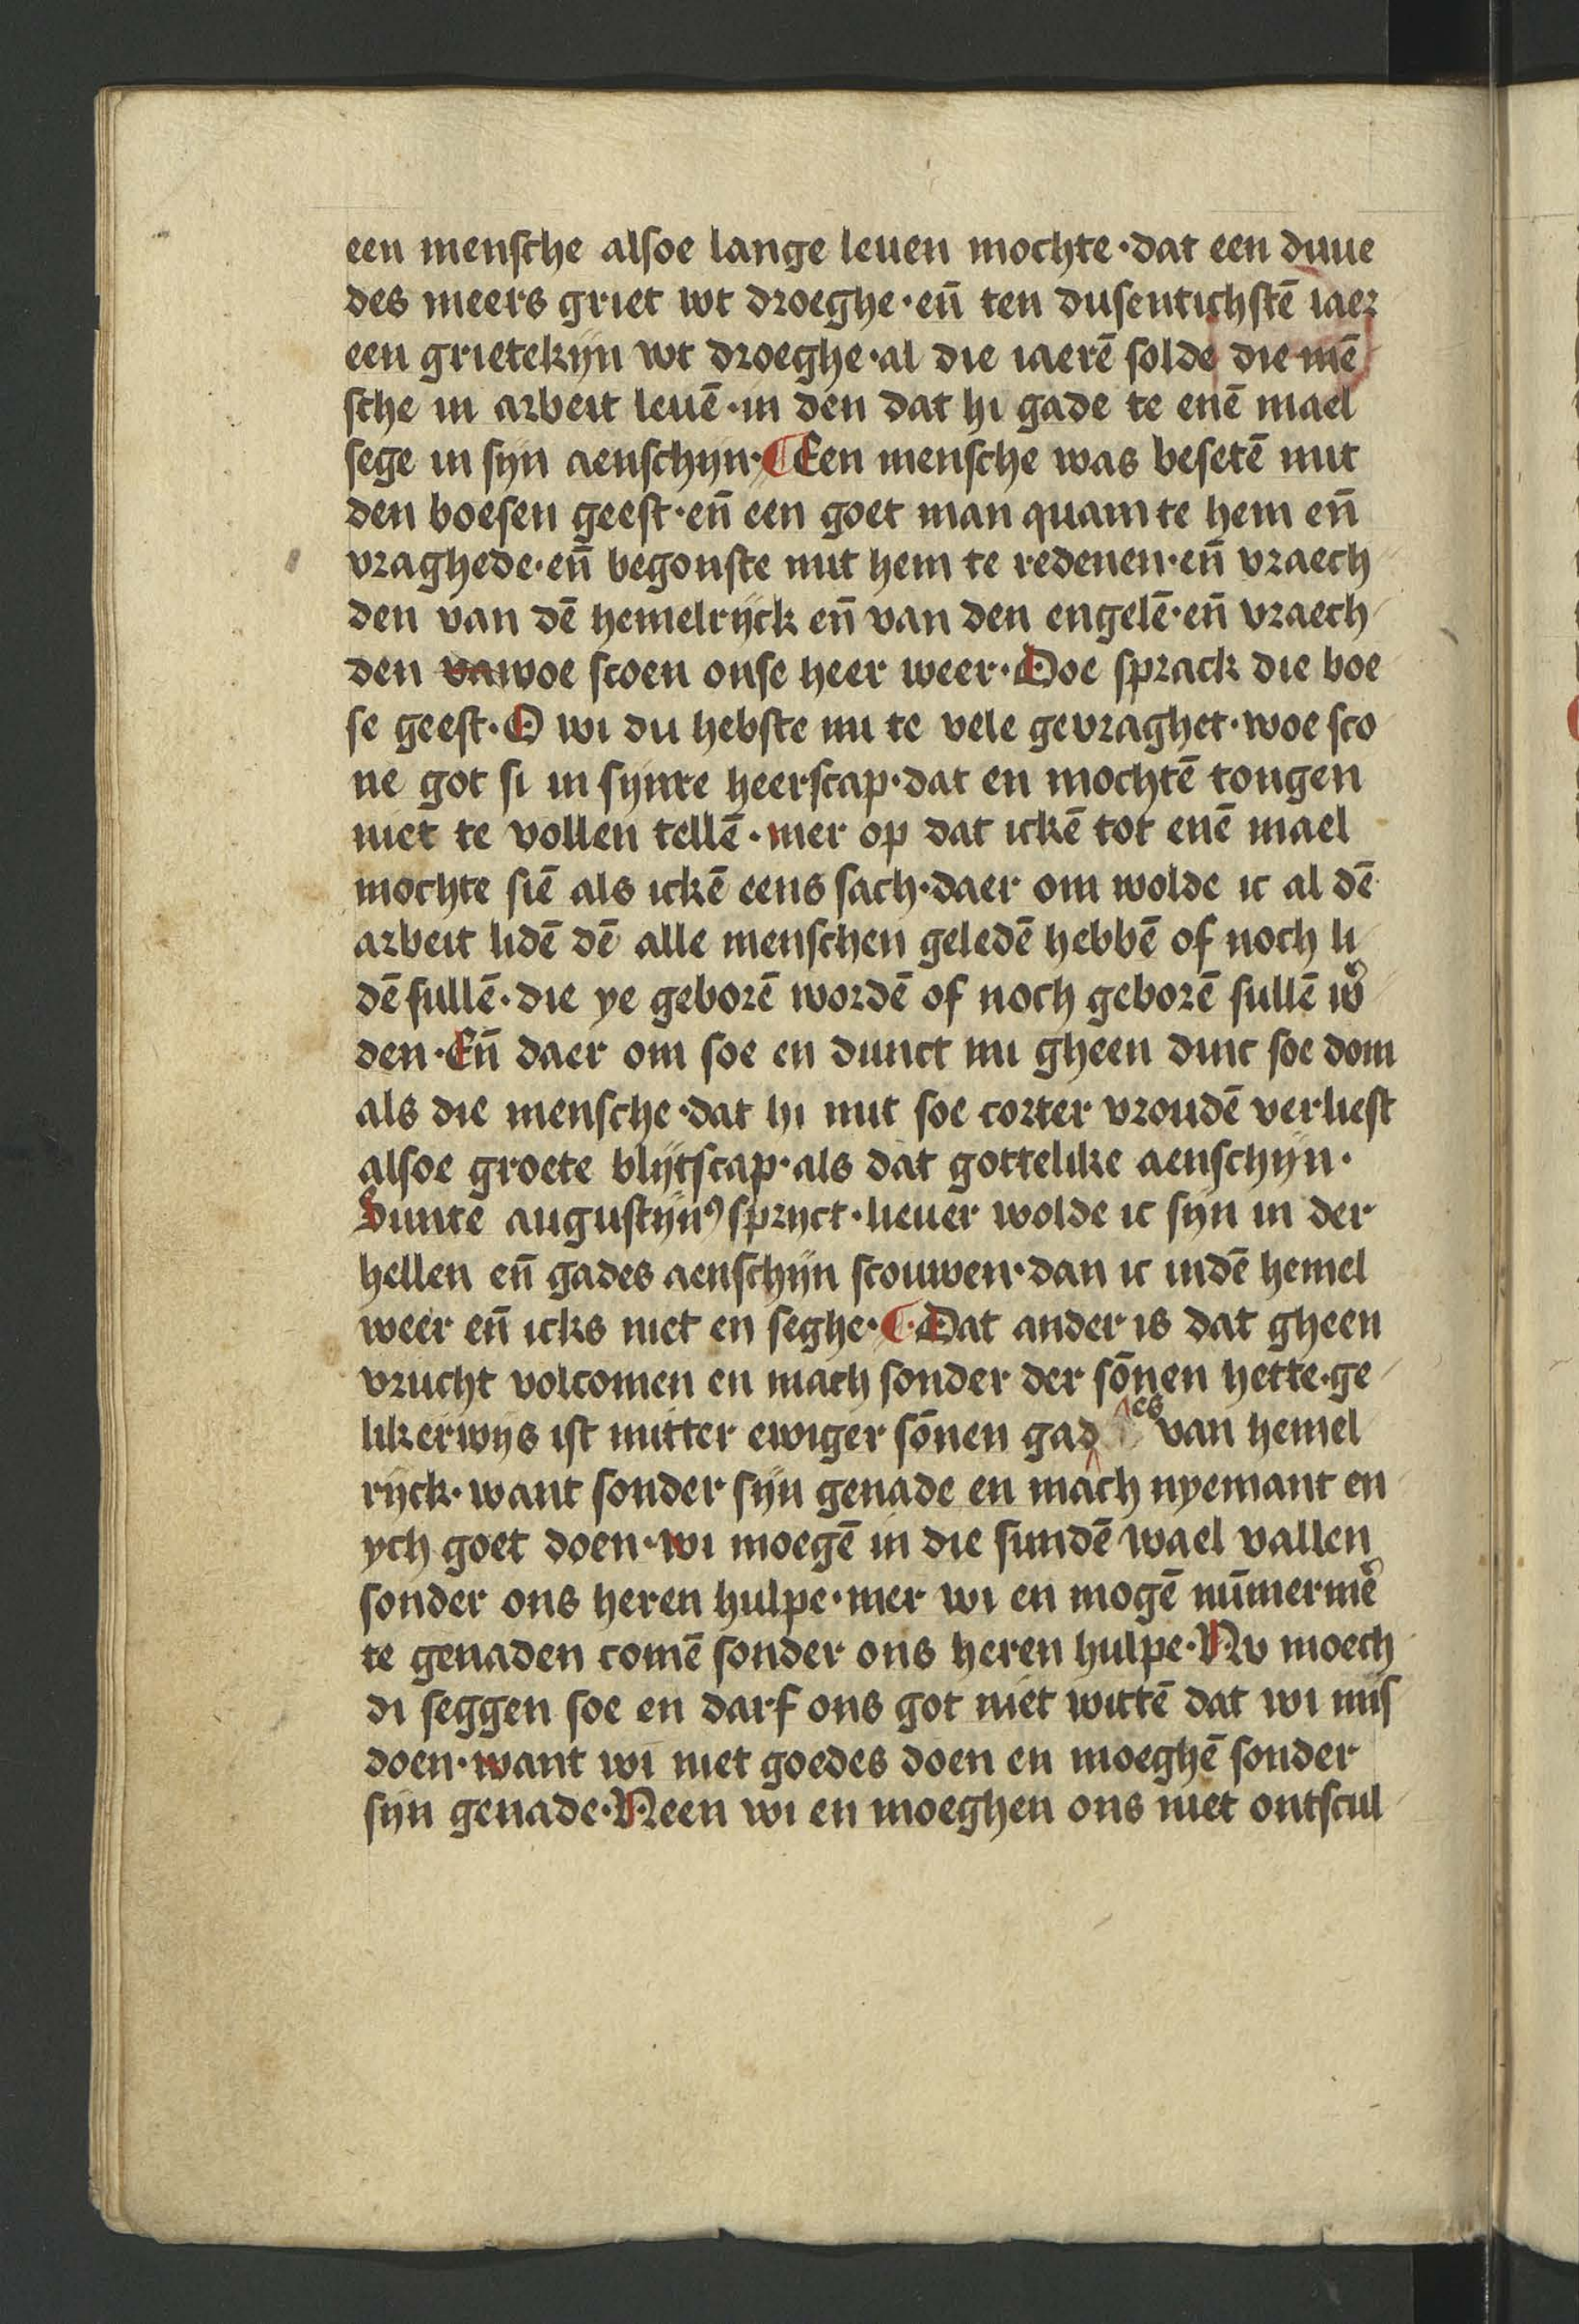 een menſche alſoe lange leuen mochte · dat een duue
des meers griet wt droeghe · en̄ ten duſentichſtē iaer
een grietekijn wt droeghe · al die iaerē ſolde die mē
ſche in arbeit leuē · in den dat hi gade te enē mael
ſege in ſijn aenſchijn · ¶ Een menſche was beſetē mit
den boeſen geeſt · en̄ een goet man quam te hem en̄
vraghede · en̄ begonſte mit hem te redenen · en̄ vraech
den van dē hemelrijck en̄ van den engelē · en̄ vraech
den va woe ſcoen onſe heer weer · Doe ſprack die boe
ſe geeſt · O wi du hebſte nu te vele gevraghet · woe ſco
ne got ſi in ſijnre heerſcap · dat en mochtē tongen
niet te vollen tellē · mer op dat ickē tot enē mael
mochte ſiē als ickē eens ſach · daer om wolde ic al dē
arbeit lidē dē alle menſchen geledē hebbē of noch li
dē ſullē · die ye geborē wordē of noch geborē ſullē w᷒
den · En̄ daer om ſoe en dunct mi gheen dinc ſoe dom
als die menſche · dat hi mit ſoe corter vroudē verlieſt
alſoe groete blijtſcap · als dat gottelike aenſchijn ·
Sunte auguſtijnꝰ ſprict · lieuer wolde ic ſijn in der
hellen en̄ gades aenſchijn ſcouwen · dan ic indē hemel
weer en̄ icks niet en ſeghe · ¶ Dat ander is dat gheen
vrucht volcomen en mach ſonder der ſōnen hette · ge
likerwijs iſt mitter ewiger ſōnen gad es van hemel
rijck · want ſonder ſijn genade en mach nyemant en
ych goet doen · wi moegē in die ſundē wael vallen
ſonder ons heren hulpe · mer wi en mogē nūmerme᷒
te genaden comē ſonder ons heren hulpe · Nv moech
di ſeggen ſoe en darf ons got niet wittē dat wi miſ
doen · want wi niet goedes doen en moeghē ſonder
ſijn genade · Neen wi en moeghen ons niet ontſcul